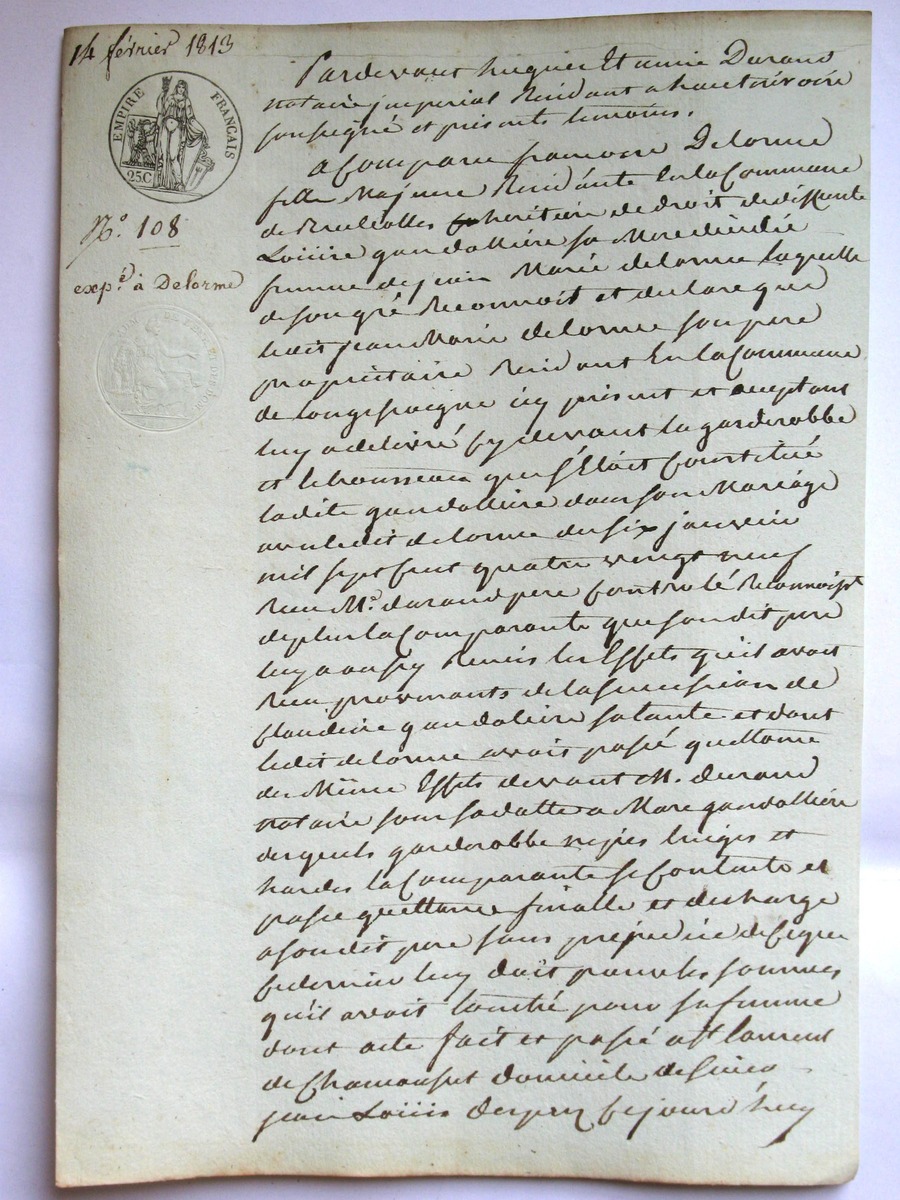 14 février 1813
EMPIRE FRANÇAIS
25C
N.o 108
exp.é à Delorme
Pardevant hugues Etienne Durand
notaire imperial Residant a hauterivoire
soussigné et présents temoins.
a Comparu francoise Delorme
fille Majeure Residante En la Commune
de Brullolles heritiere de droit de déffunte
Loüise gandolliere sa Mere décédée
femme de jean Marie delorme laquelle
de son gré Reconnoit et declare que
ledit jean Marie delorme son pere
propriétaire Residant En la Commune
de Longessaigne icy présent et acceptant
luy a delivré cy devant la garderobbe
et le trousseau que s'Etoit Constitué
ladite gandolliere dans son Mariage
avec ledit delorme du six janvier
mil sept Cent quatre vingt neuf
Recu M.e durand pere Controlé Reconnoist
de plus la Comparante que son dit pere
luy a aussy Remis les Effets qu'il avoit
Recu provenants de la succession de
Claudine gandoliere sa tante et dont
ledit delorme avoit passé quittance
des Même Effets devant M. durand
notaire sous sa datte a Marc gandolliere
desquels garderobbe nippes linges et
hardes la Comparante se Contente et
passe quittance finalle et decharge
a son dit pere sans préjudice de Ceque
Ce dernier luy doit pour les sommes
qu'il avoit pour sa femme
dont acte fait et passé a St laurent
de Chamousset domicile de sieur
jean Loüis Cejourd'huy